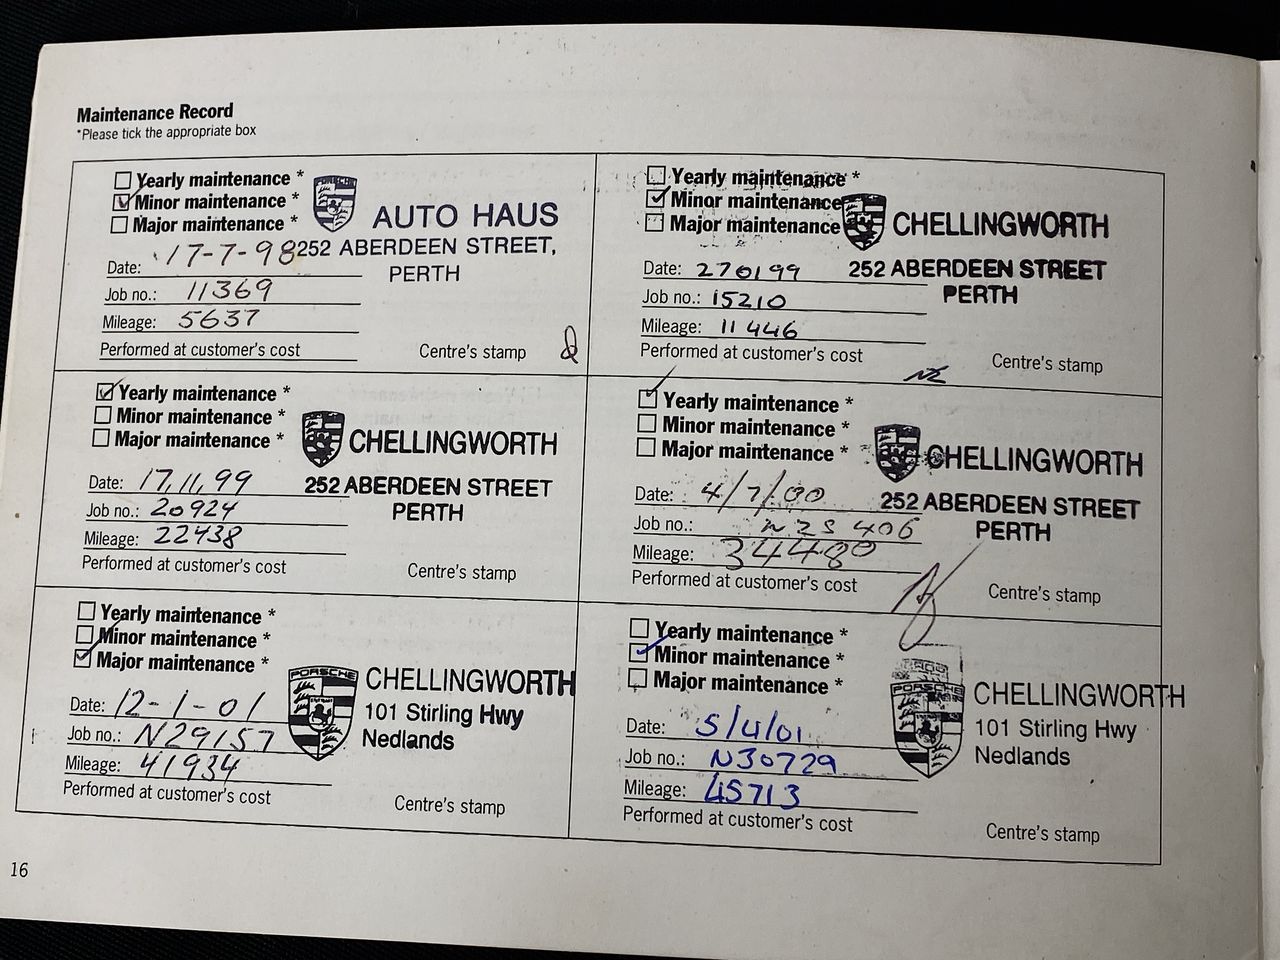 Maintenance Record
*Please tick the appropriate box
Yearly maintenance *
Minor maintenance *
Major maintenance *
PORSCHE
AUTO HAUS
252 ABERDEEN STREET,
PERTH
Date: 17-7-98
Job no.: 11369
Mileage: 5637
Performed at customer's cost
Centre's stamp
Yearly maintenance *
Minor maintenance
Major maintenance
CHELLINGWORTH
252 ABERDEEN STREET
PERTH
Date: 270199
Job no.: 15210
Mileage: 11446
Performed at customer's cost
Centre's stamp
Yearly maintenance *
Minor maintenance *
Major maintenance *
CHELLINGWORTH
252 ABERDEEN STREET
PERTH
Date: 17.11.99
Job no.: 20924
Mileage: 22438
Performed at customer's cost
Centre's stamp
Yearly maintenance *
Minor maintenance *
Major maintenance *
CHELLINGWORTH
252 ABERDEEN STREET
PERTH
Date: 4/7/00
Job no.:
Mileage: 34480
Performed at customer's cost
Centre's stamp
Yearly maintenance *
Minor maintenance *
Major maintenance *
PORSCHE
CHELLINGWORTH
101 Stirling Hwy
Nedlands
Date: 12-1-01
Job no.: N29157
Mileage: 41934
Performed at customer's cost
Centre's stamp
Yearly maintenance *
Minor maintenance *
Major maintenance *
PORSCHE
CHELLINGWORTH
101 Stirling Hwy
Nedlands
Date: 5/4/01
Job no.: N30729
Mileage: 45713
Performed at customer's cost
Centre's stamp
16